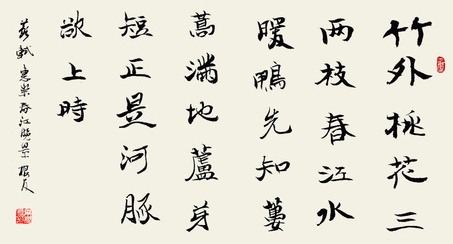 竹外桃花三
两枝春江水
暖鴨先知蔞
蒿满地蘆芽
短正是河豚
欲上時
蘇軾惠崇春江晚景 根友